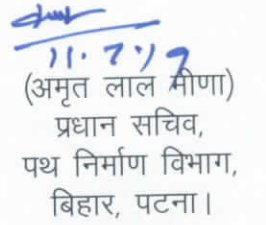 11.7.17
(अमृत लाल मीणा)
प्रधान सचिव,
पथ निर्माण विभाग,
बिहार, पटना।